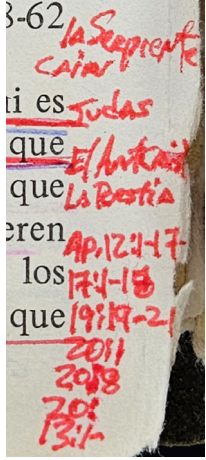 8-62
la Serpiente
Cain
ni es Judas
que El Anticri
que La Bestia
eren Ap. 12:1-17
los 17:1-18
que 19:19-21
20:11
20:8
20:
13:1-